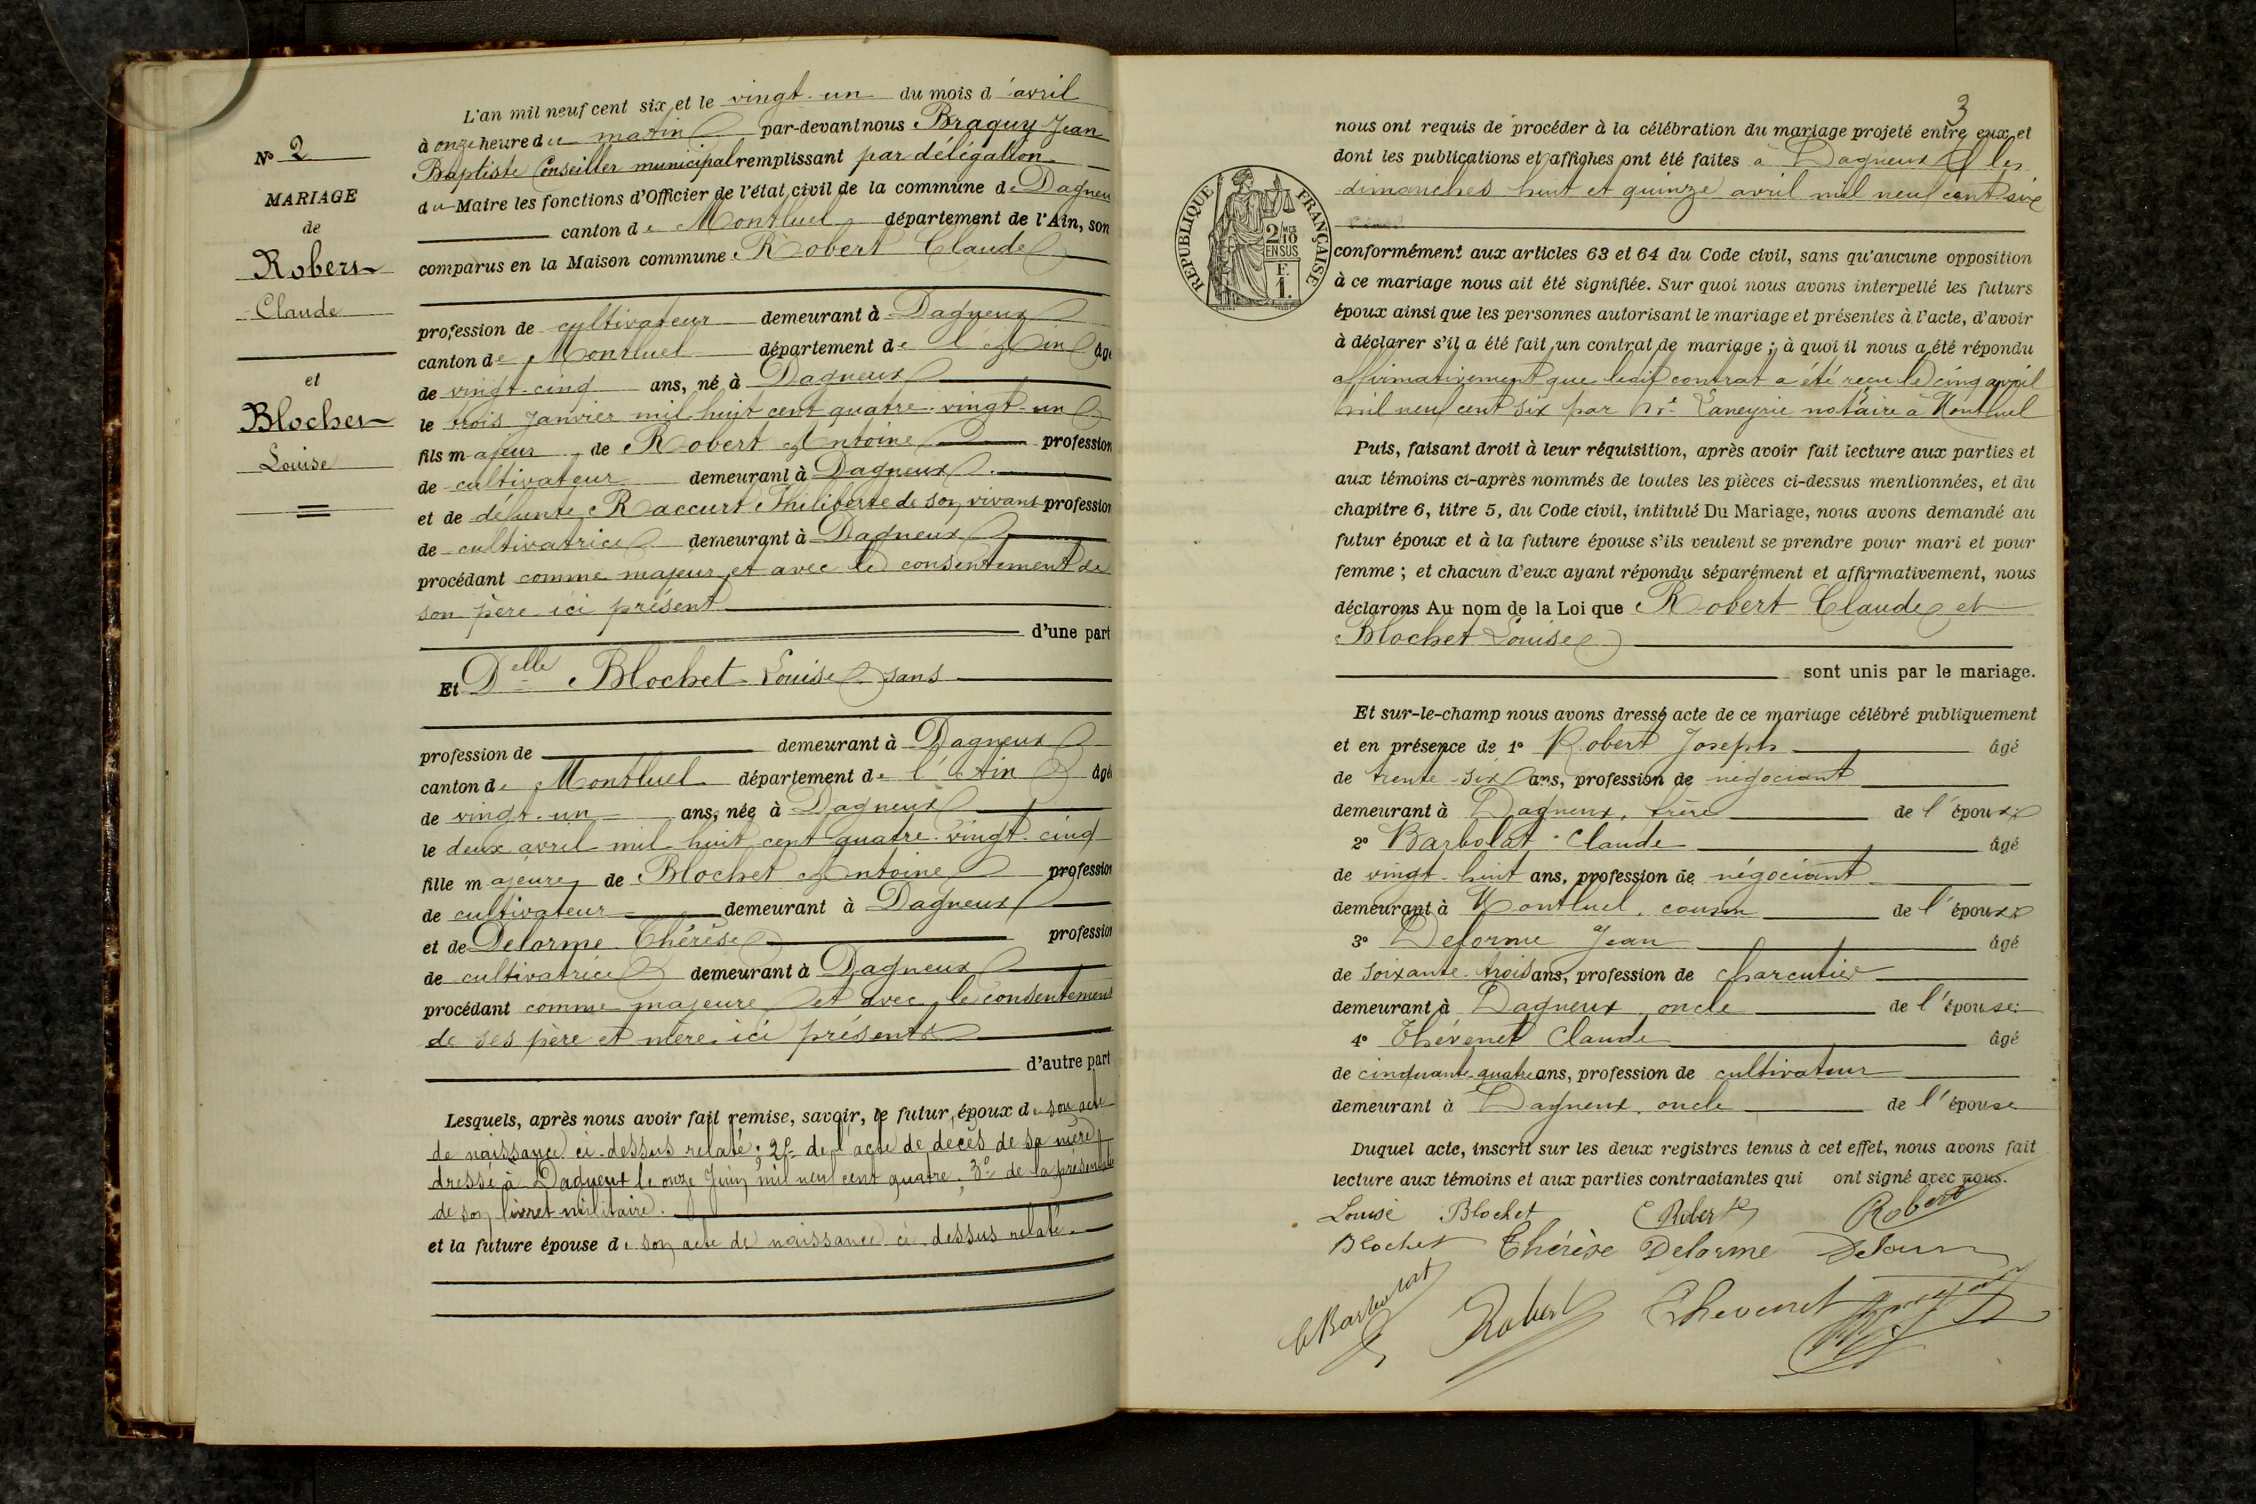 N° 2
MARIAGE
de
Robert
Claude
et
Blochet
Louise
L'an mil neuf cent six et le vingt-un du mois d'avril
à onze heure du matin par-devant nous Braquy Jean
Baptiste Conseiller municipal remplissant par délégation
du Maire les fonctions d'Officier de l'état civil de la commune de Dagneu
canton de Montluel département de l'Ain, son
comparus en la Maison commune Robert Claude
profession de cultivateur demeurant à Dagneux
canton de Montluel département de l'Ain âgé
de vingt-cinq ans, né à Dagneux
le trois janvier mil-huit cent quatre-vingt-un
fils majeur de Robert Antoine profession
de cultivateur demeurant à Dagneux
et de défunte Raccurt Philiberte de son vivant profession
de cultivatrice demeurant à Dagneux
procédant comme majeur et avec le consentement de
son père ici présent
d'une part
Et Delle Blochet Louise sans
profession de demeurant à Dagneux
canton de Montluel département de l'Ain âgé
de vingt-un ans, née à Dagneux
le deux avril mil-huit cent quatre-vingt-cinq
fille majeure de Blochet Antoine profession
de cultivateur demeurant à Dagneux
et de Delorme Thérèse profession
de cultivatrice demeurant à Dagneux
procédant comme majeure et avec le consentement
de ses père et mère ici présents
d'autre part
Lesquels, après nous avoir fait remise, savoir, le futur époux de son acte
de naissance ci-dessus relaté; 2° de l'acte de décès de sa mère,
dressé à Dagneux le onze Juin mil neuf cent quatre; 3° de la présentation
de son livret militaire.
et la future épouse de son acte de naissance ci-dessus relaté.
3
nous ont requis de procéder à la célébration du mariage projeté entre eux et
dont les publications et affiches ont été faites à Dagneux les
dimanches huit et quinze avril mil neuf cent six
RÉPUBLIQUE FRANÇAISE
2/10 EN SUS
F.
1.
conformément aux articles 63 et 64 du Code civil, sans qu'aucune opposition
à ce mariage nous ait été signifiée. Sur quoi nous avons interpellé les futurs
époux ainsi que les personnes autorisant le mariage et présentes à l'acte, d'avoir
à déclarer s'il a été fait un contrat de mariage; à quoi il nous a été répondu
affirmativement que ledit contrat a été reçu le cinq avril
mil neuf cent six par Me Laneyrie notaire à Montluel
Puis, faisant droit à leur réquisition, après avoir fait lecture aux parties et
aux témoins ci-après nommés de toutes les pièces ci-dessus mentionnées, et du
chapitre 6, titre 5, du Code civil, intitulé Du Mariage, nous avons demandé au
futur époux et à la future épouse s'ils veulent se prendre pour mari et pour
femme; et chacun d'eux ayant répondu séparément et affirmativement, nous
déclarons Au nom de la Loi que Robert Claude et
Blochet Louise
sont unis par le mariage.
Et sur-le-champ nous avons dressé acte de ce mariage célébré publiquement
et en présence de 1° Robert Joseph âgé
de trente-six ans, profession de négociant
demeurant à Dagneux, frère de l'époux
2° Barbolat Claude âgé
de vingt-huit ans, profession de négociant
demeurant à Montluel, cousin de l'époux
3° Delorme Jean âgé
de soixante-trois ans, profession de charcutier
demeurant à Dagneux, oncle de l'épouse
4° Thévenet Claude âgé
de cinquante-quatre ans, profession de cultivateur
demeurant à Dagneux, oncle de l'épouse
Duquel acte, inscrit sur les deux registres tenus à cet effet, nous avons fait
lecture aux témoins et aux parties contractantes qui ont signé avec nous.
Louise Blochet C Robert Robert
Blochet Thérèse Delorme Delorme
C Barbolat Robert Thevenet